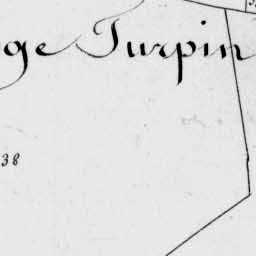 ge Turpin
38